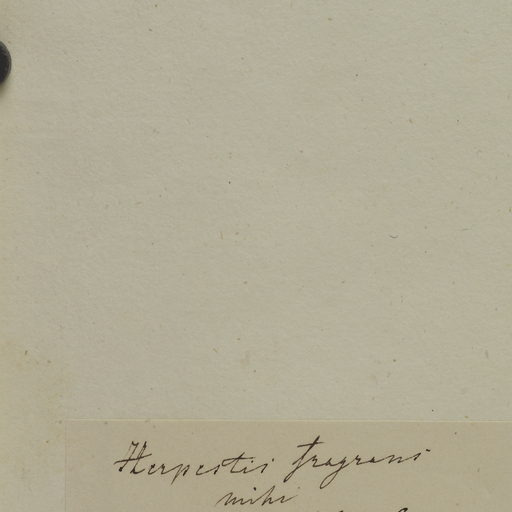 Herpestis fragrans
mihi